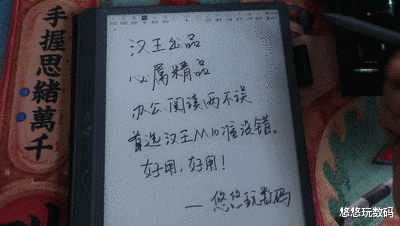 手握思緒萬千
汉王出品
必属精品
办公阅读两不误
首选汉王M10准没错。
好用,好用!
— 悠悠玩数码
悠悠玩数码